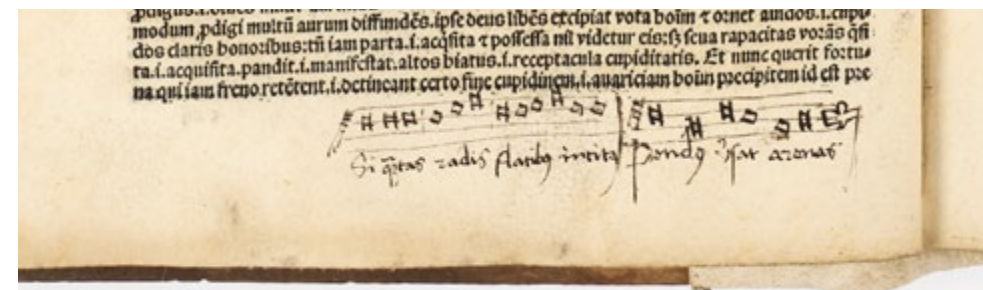 modum ꝓdigi multū aurum diffundēs. ipse deus libēs excipiat vota hoīm ⁊ ornet auidos .i. cupi
dos claris honoribus: tñ iam parta .i. acq̄sita ⁊ possessa nil videtur eis: sꝫ seua rapacitas vorās q̄si
ta .i. acquisita. pandit .i. manifestat. altos hiatus .i. receptacula cupiditatis. Et nunc querit fortu
na qui iam freno retētent .i. detineant certo fine cupidinem .i. auariciam hoīm precipitem id est pre
Si q̄tas radis flatibꝰ incitꝰ
Pondꝰ arenas